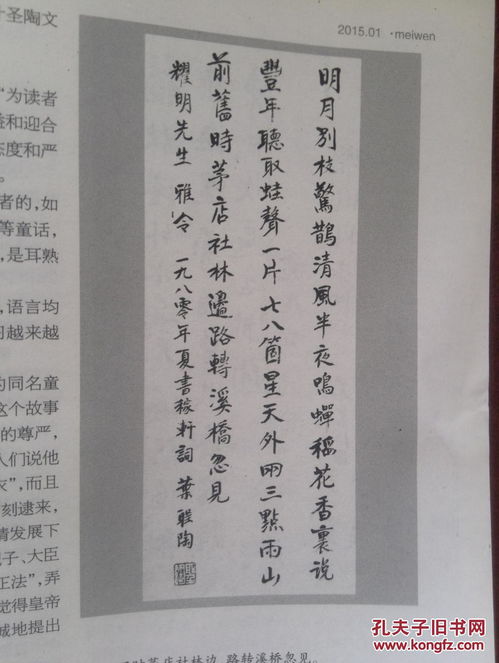 2015.01 · meiwen
叶圣陶文
“为读者
益和迎合
态度和严
者的，如
等童话，
，是耳熟
，语言均
习越来越
的同名童
这个故事
的尊严，
人们说他
衣”，而且
刻逮来，
情发展下
子、大臣
正法”，弄
觉得皇帝
诚地提出
明月别枝驚鵲清風半夜鳴蟬稻花香裏说
豐年聽取蛙聲一片七八箇星天外兩三點雨山
前舊時茅店社林邊路轉溪橋忽見
耀明先生 雅令 一九八〇年夏書稼軒詞 葉聖陶
茅店社林边，路转溪桥忽见。
孔夫子旧书网
www.kongfz.com